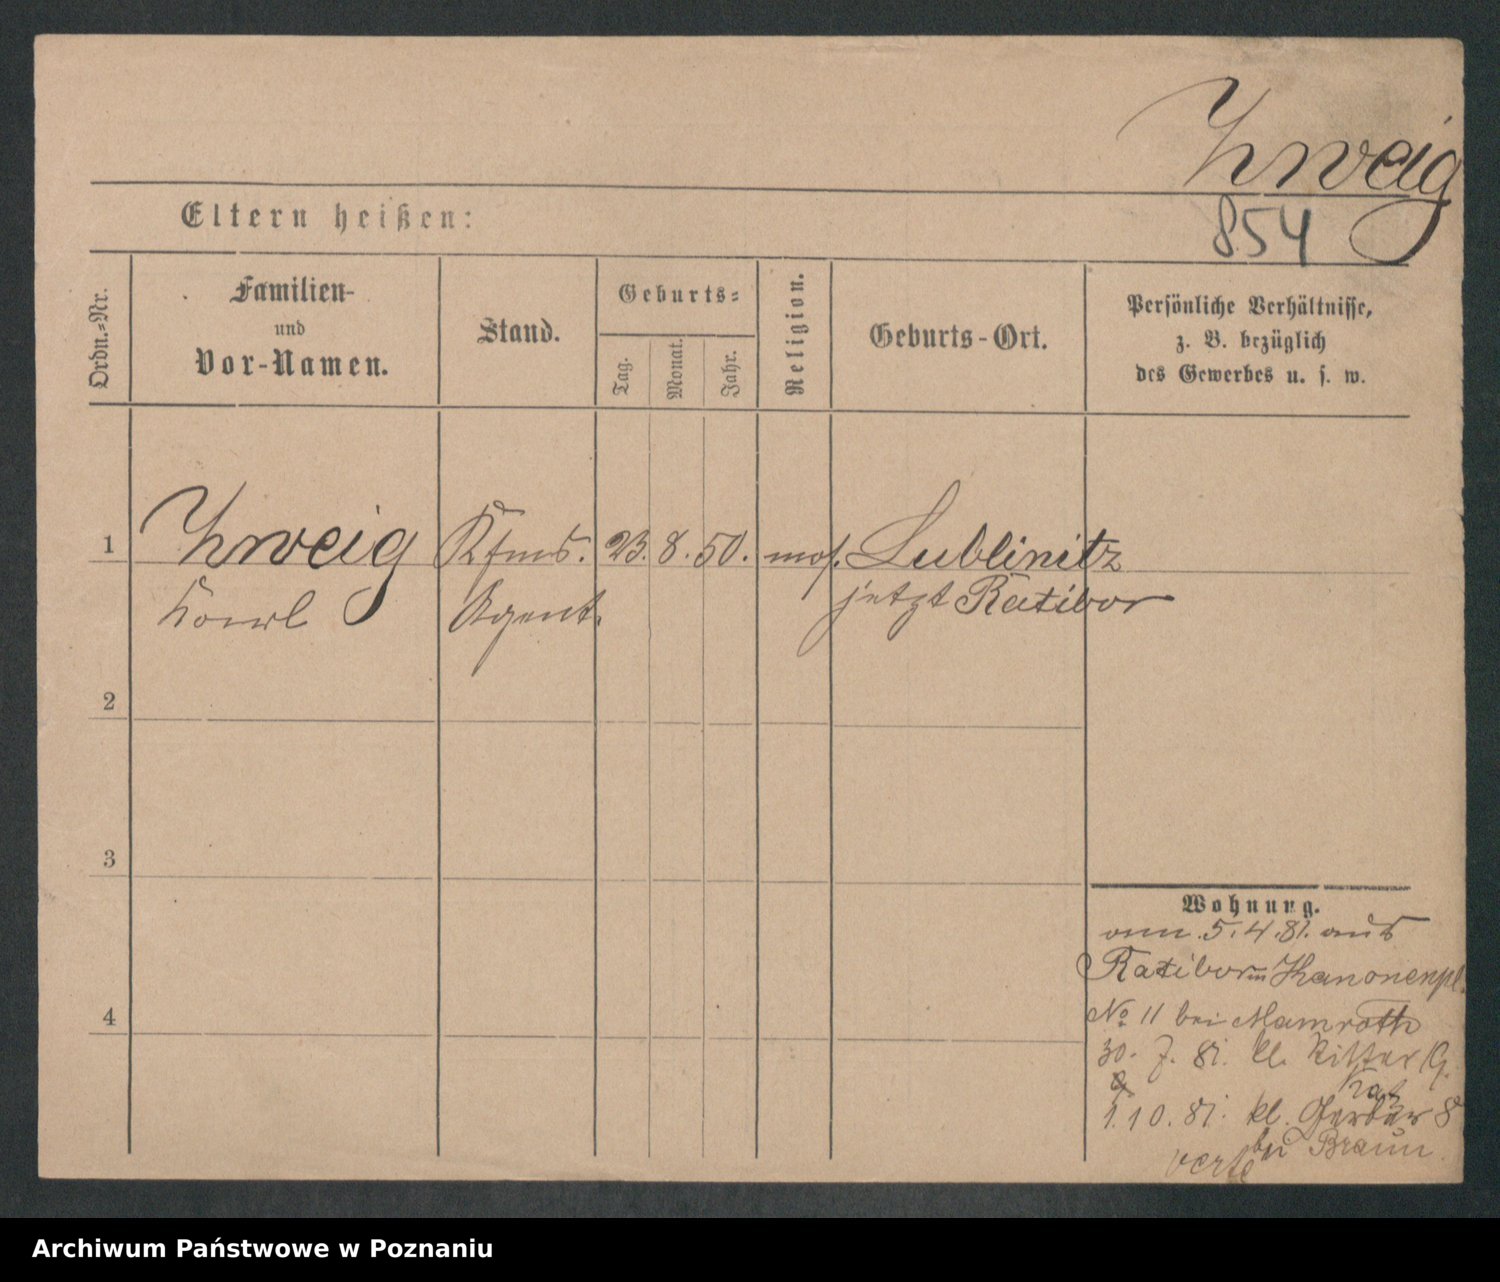 Zweig
854
Eltern heißen:
Ordn.-Nr.
Familien-
und
Vor-Namen.
Stand.
Geburts-
Tag.
Monat.
Jahr.
Religion.
Geburts-Ort.
Persönliche Verhältnisse,
z. B. bezüglich
des Gewerbes u. s. w.
1 Zweig Kfm. 23. 8. 50. mos. Lublinitz
Karl Agent. jetzt Ratibor
2
3
4
Wohnung.
5.4.81. aus
Ratibor Kanonenpl.
No 11 bei Mamroth
30. 7. 81. kl. Ritter
1.10.81. kl. Gerber 8
bei Braun
verte
Archiwum Państwowe w Poznaniu